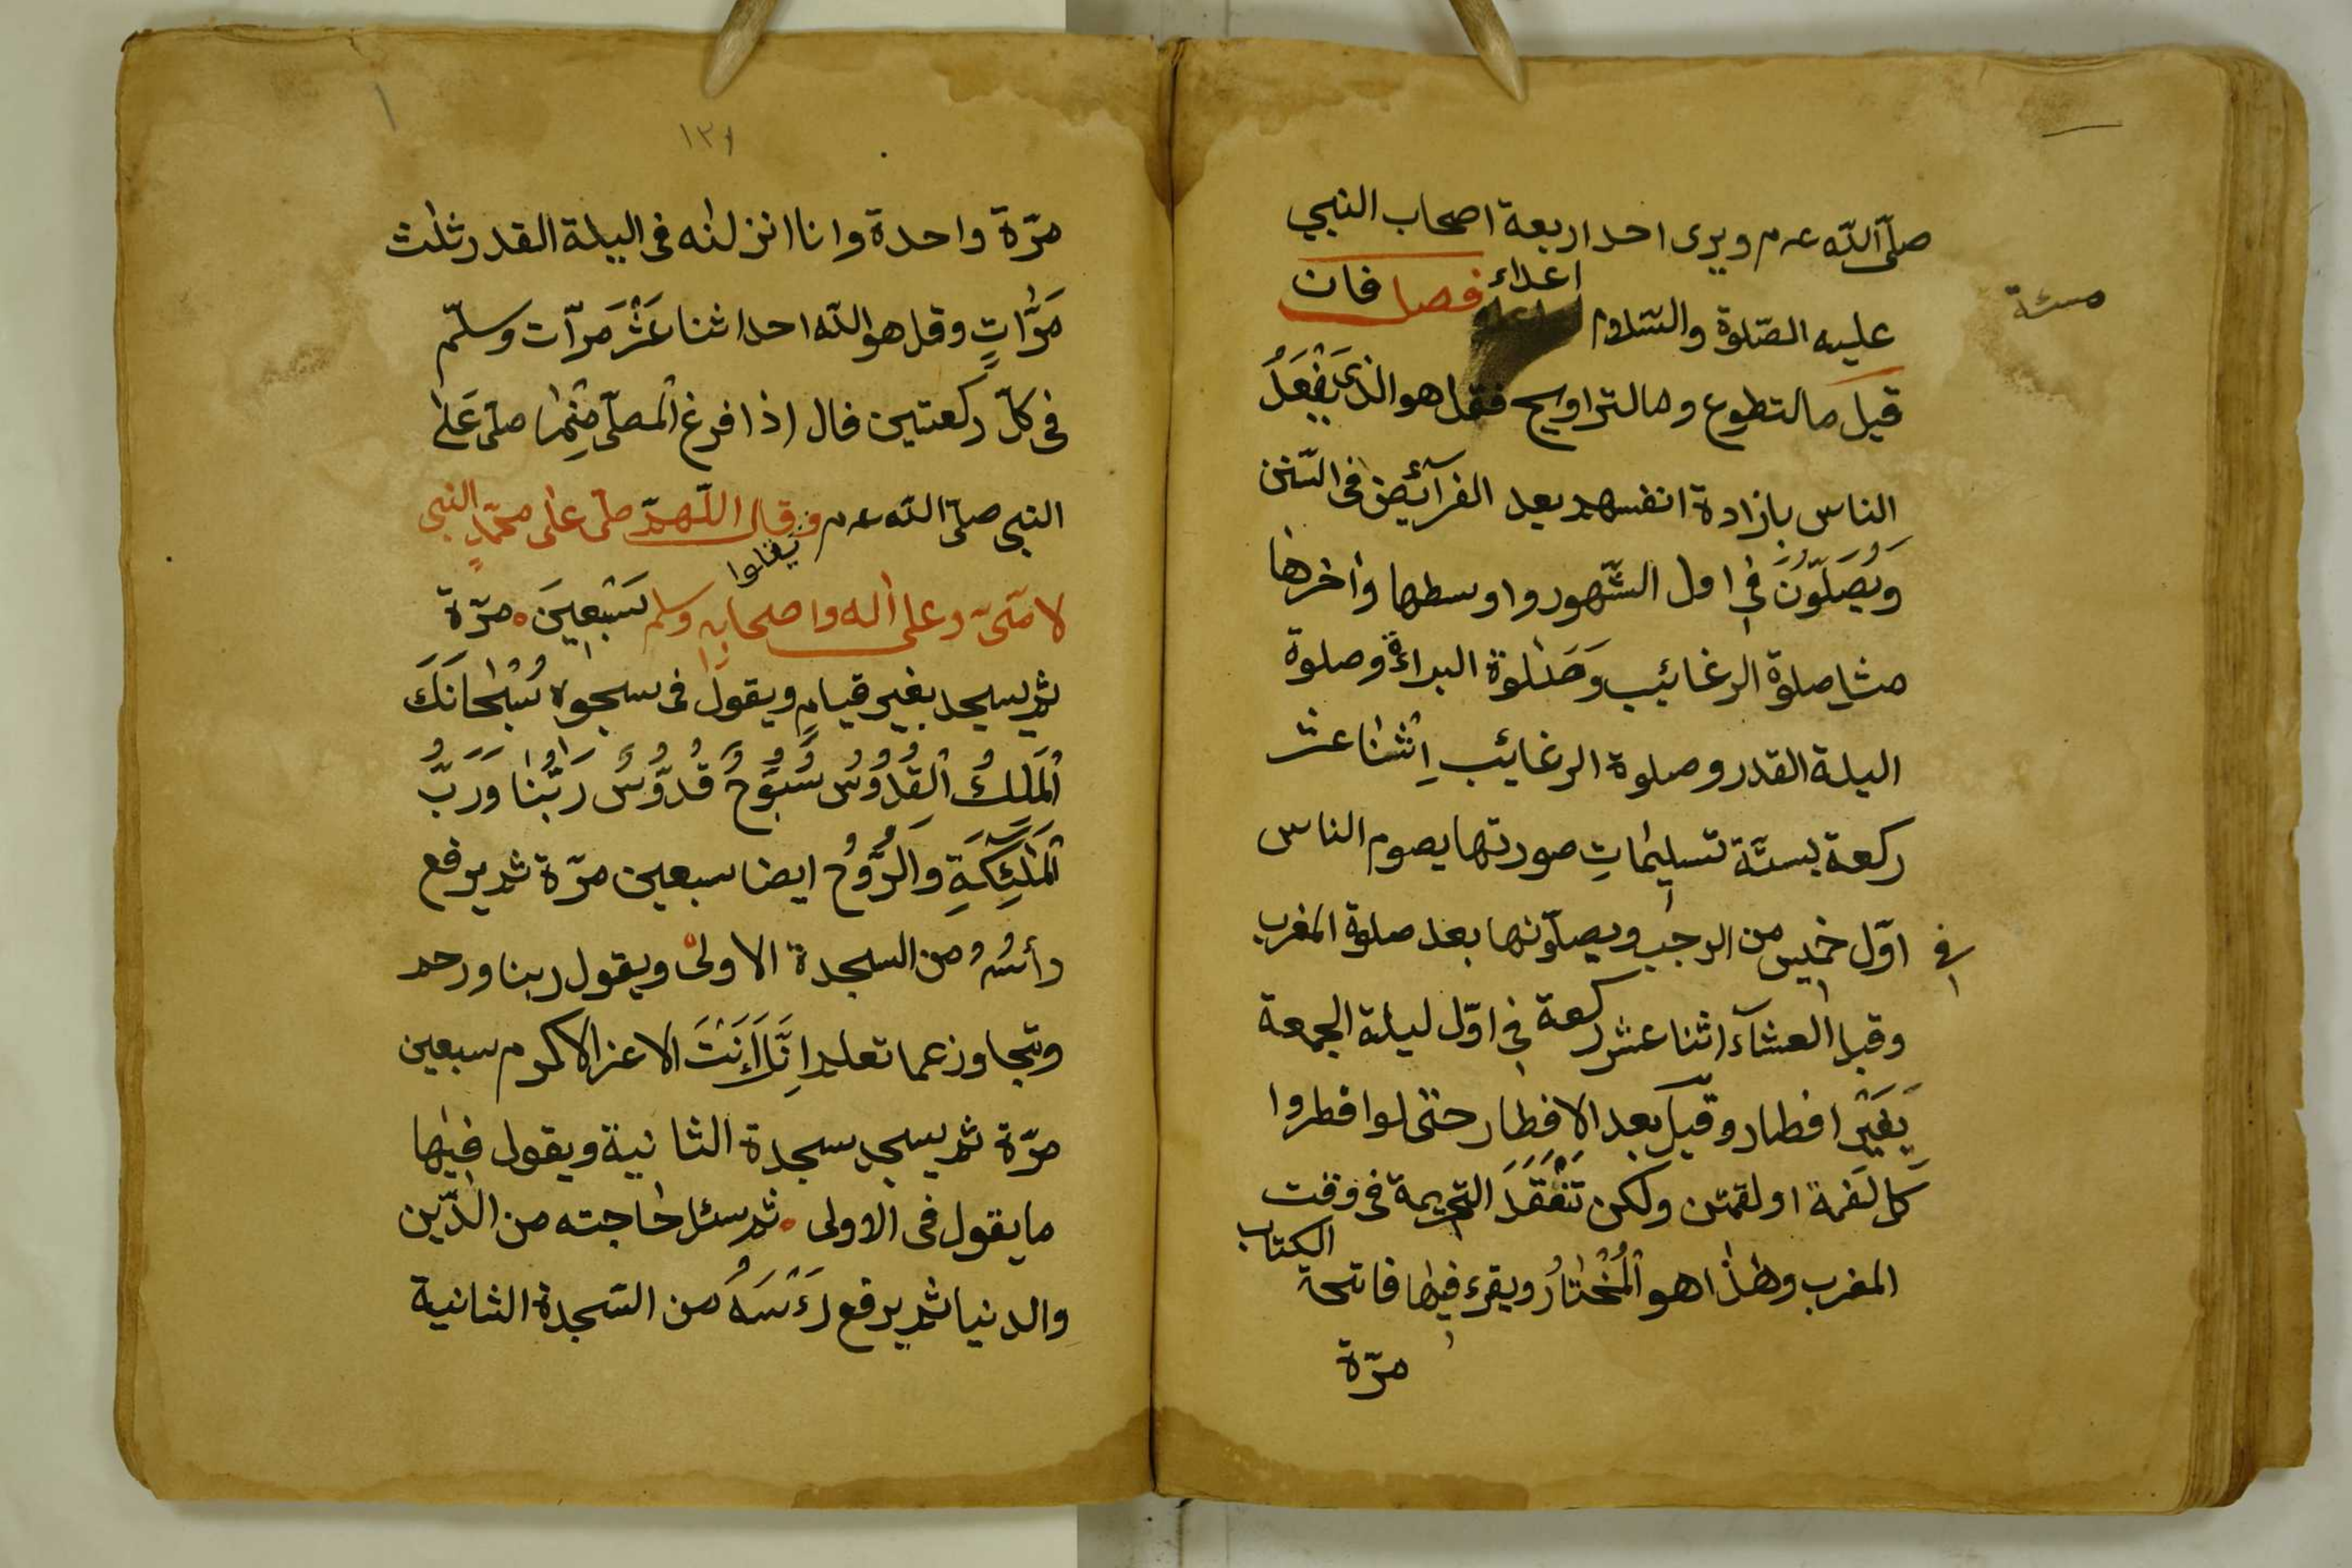 صلّى اللّه عه م ويرى احد اربعة اصحاب النبي
اعداء
عليه الصّلوة والسّلام فصل فان
مسئة
قيل ما التطوع وما لتراويح فقل هو الذى يَفْعَلُ
الناس بازادة انفسهم بعد الفرآئض فى السّنن
وَيُصَلّوُنَ فِي اول الشّهور واوسطها واٰخرها
مثل صلوة الرغائيب وَصَلٰوة البراءة وصلوة
اليلة القدر وصلوة الرغائيب اِثْنٰا عشر
ركعة بستّة تسليمٰاتٍ صورتها يصوم الناس
فى اوّل خميس من الرجب ويصلّونها بعد صلوة المغرب
وقبل العشآء اثنا عشر ركعة فى اوّل ليلة الجمعة
يَغَيْرِ افطار وقيل بعد الافطار حتى لو افطروا
كل لقمة او لقمتن ولكن تَنْعَقَدَ التحريمة فى وقت
المغرب وهٰذا هو الْمُخْتٰارُ ويقرء فيها فاتحة الكتاب
مرّة
١٣١
مرّة واحدة وانا انزلنٰه فى اليلة القدر ثلٰث
مَرّاتٍ وقل هو اللّه احد اثنا عَشْرَ مرّات وسلّم
فى كلّ ركعتين فال اذا فرغ الْمصلّى مِنْهٰا صلّى عَلٰى
النبى صلّى اللّه عه م وقال اللّهمّ صلّى على محمّدٍ النبى
يقلوا
لامّىّ وعلى اٰله واصحابه وسلم سَبْعِينَ مرّة
ثم يسجد بغير قيامٍ ويقول فى سجوده سُبْحٰانَكَ
الْمَلِكُ الْقُدُّوُسُ سُبّوُحُ قُدّوُسُ رَبُّنٰا وَرَبُّ
الْمَلٰئِكَةِ وَالرُّوُحُ ايضا سبعين مرّة ثم يرفع
رأسُهُ من السجدة الاولىٰ ويقول ربنا ورحم
وتجاوز عما تعلم اِنَّكَ اَنْتَ الاعز الاكرم سبعين
مرّة ثم يسجد سجدة الثانية ويقول فيها
ما يقول فى الاولى ثم سئل حٰاجته من الدّين
والدنيا ثم يرفع رَءْسَهُ من السّجدة الثانية